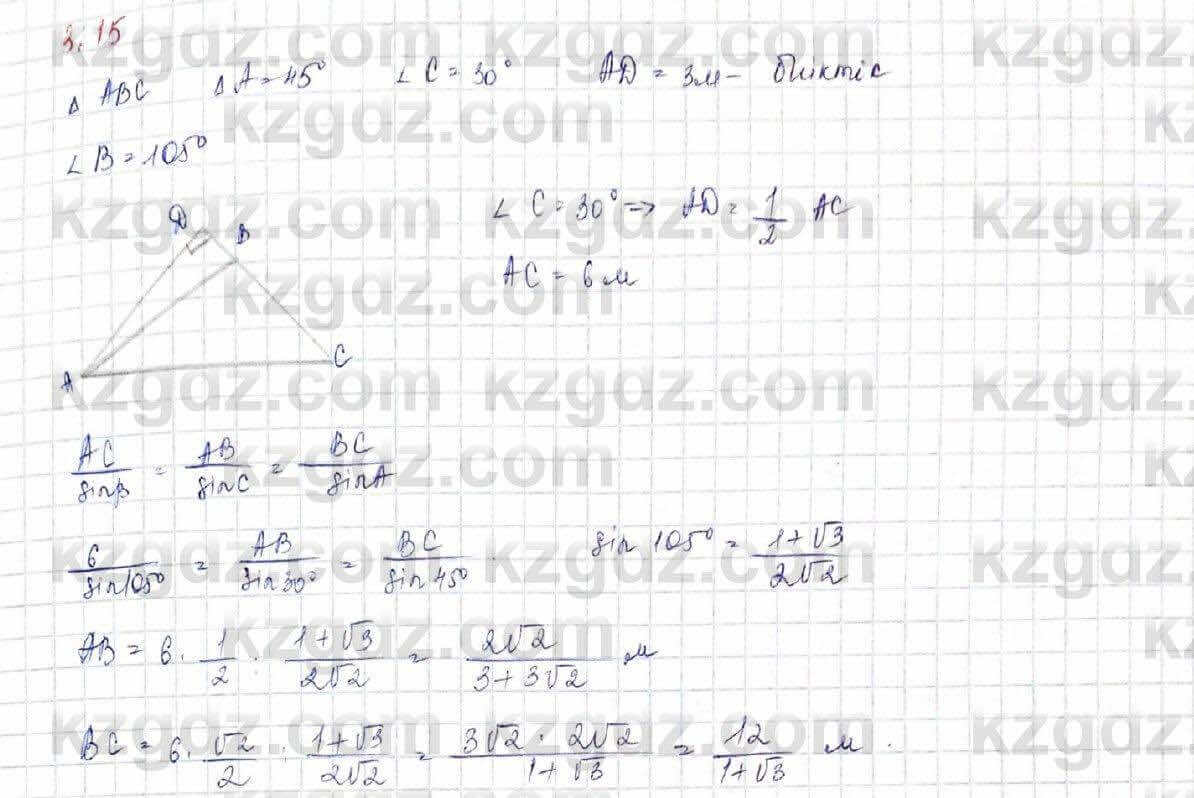 3.15
△ ABC △A = 45° ∠ C = 30° AD = 3м – биіктік
∠ B = 105°
D B
∠ C = 30° => AD = 1/2 AC
AC = 6 м
A C
AC/sinB = AB/sinC = BC/sinA
6/sin105° = AB/sin30° = BC/sin45° sin 105° = (1+√3)/(2√2)
AB = 6 · 1/2 · (1+√3)/(2√2) = (2√2)/(3+3√2) м
BC = 6 · √2/2 · (1+√3)/(2√2) = (3√2 · 2√2)/(1+√3) = 12/(1+√3) м.
kzgdz.com